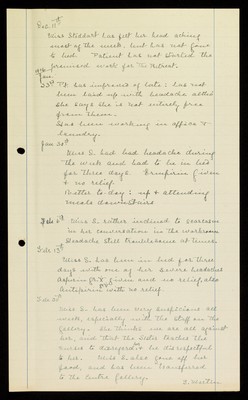 Dec. 11th
Miss Stobbart has felt her head aching
most of the week, but has not gone
to bed. Patient has not started the
promised work for The Retreat.
Jan.
23rd Pt. has improved of late: has not
been laid up with headache altho'
she says she is not entirely free
from them.
Has been working in office &
laundry.
Jan 30th
Miss S. had bad headache during
the week and had to be in bed
for three days. Empirin given
& no relief.
Better to day: up & attending
meals downstairs
Feb 6th Miss S. rather inclined to
in her conversation in the workroom
Headache still troublesome at times.
Feb. 13th
Miss S. has been in bed for three
days with one of her severe headaches
Aspirin given and no relief, also
Antipyrin with no relief.
Feb 20th
Miss S. has been very suspicious all
week, especially with the staff on the
gallery. She thinks we are all against
her, and that the Sister teaches the
nurses to disregard & be disrespectful
to her. Miss S. also gone off her
food, and has been transferred
to the Centre Gallery.